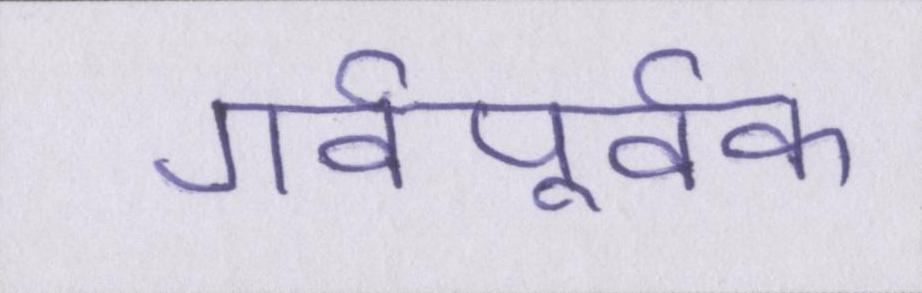 गर्वपूर्वक